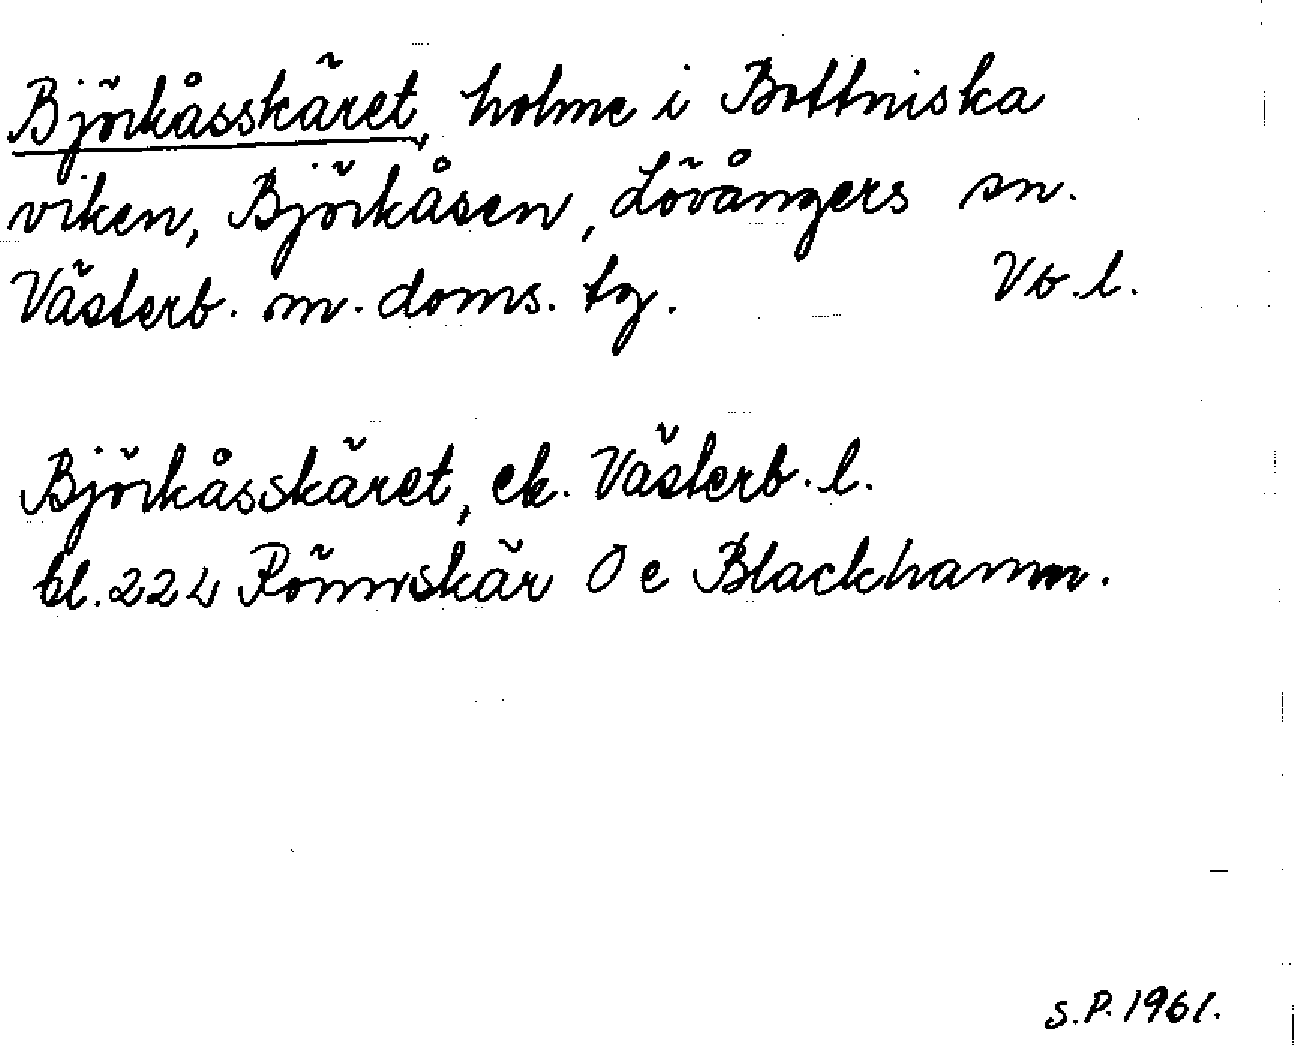 Björkåsskäret, holme i Bottniska
viken, Björkåsen, Lövångers sn.
Västerb. m. doms. tg. Vb.l.
Björkåsskäret, ek. Västerb. l.
bl. 224 Rönnskär O e Blackhamn.
S.P. 1961.